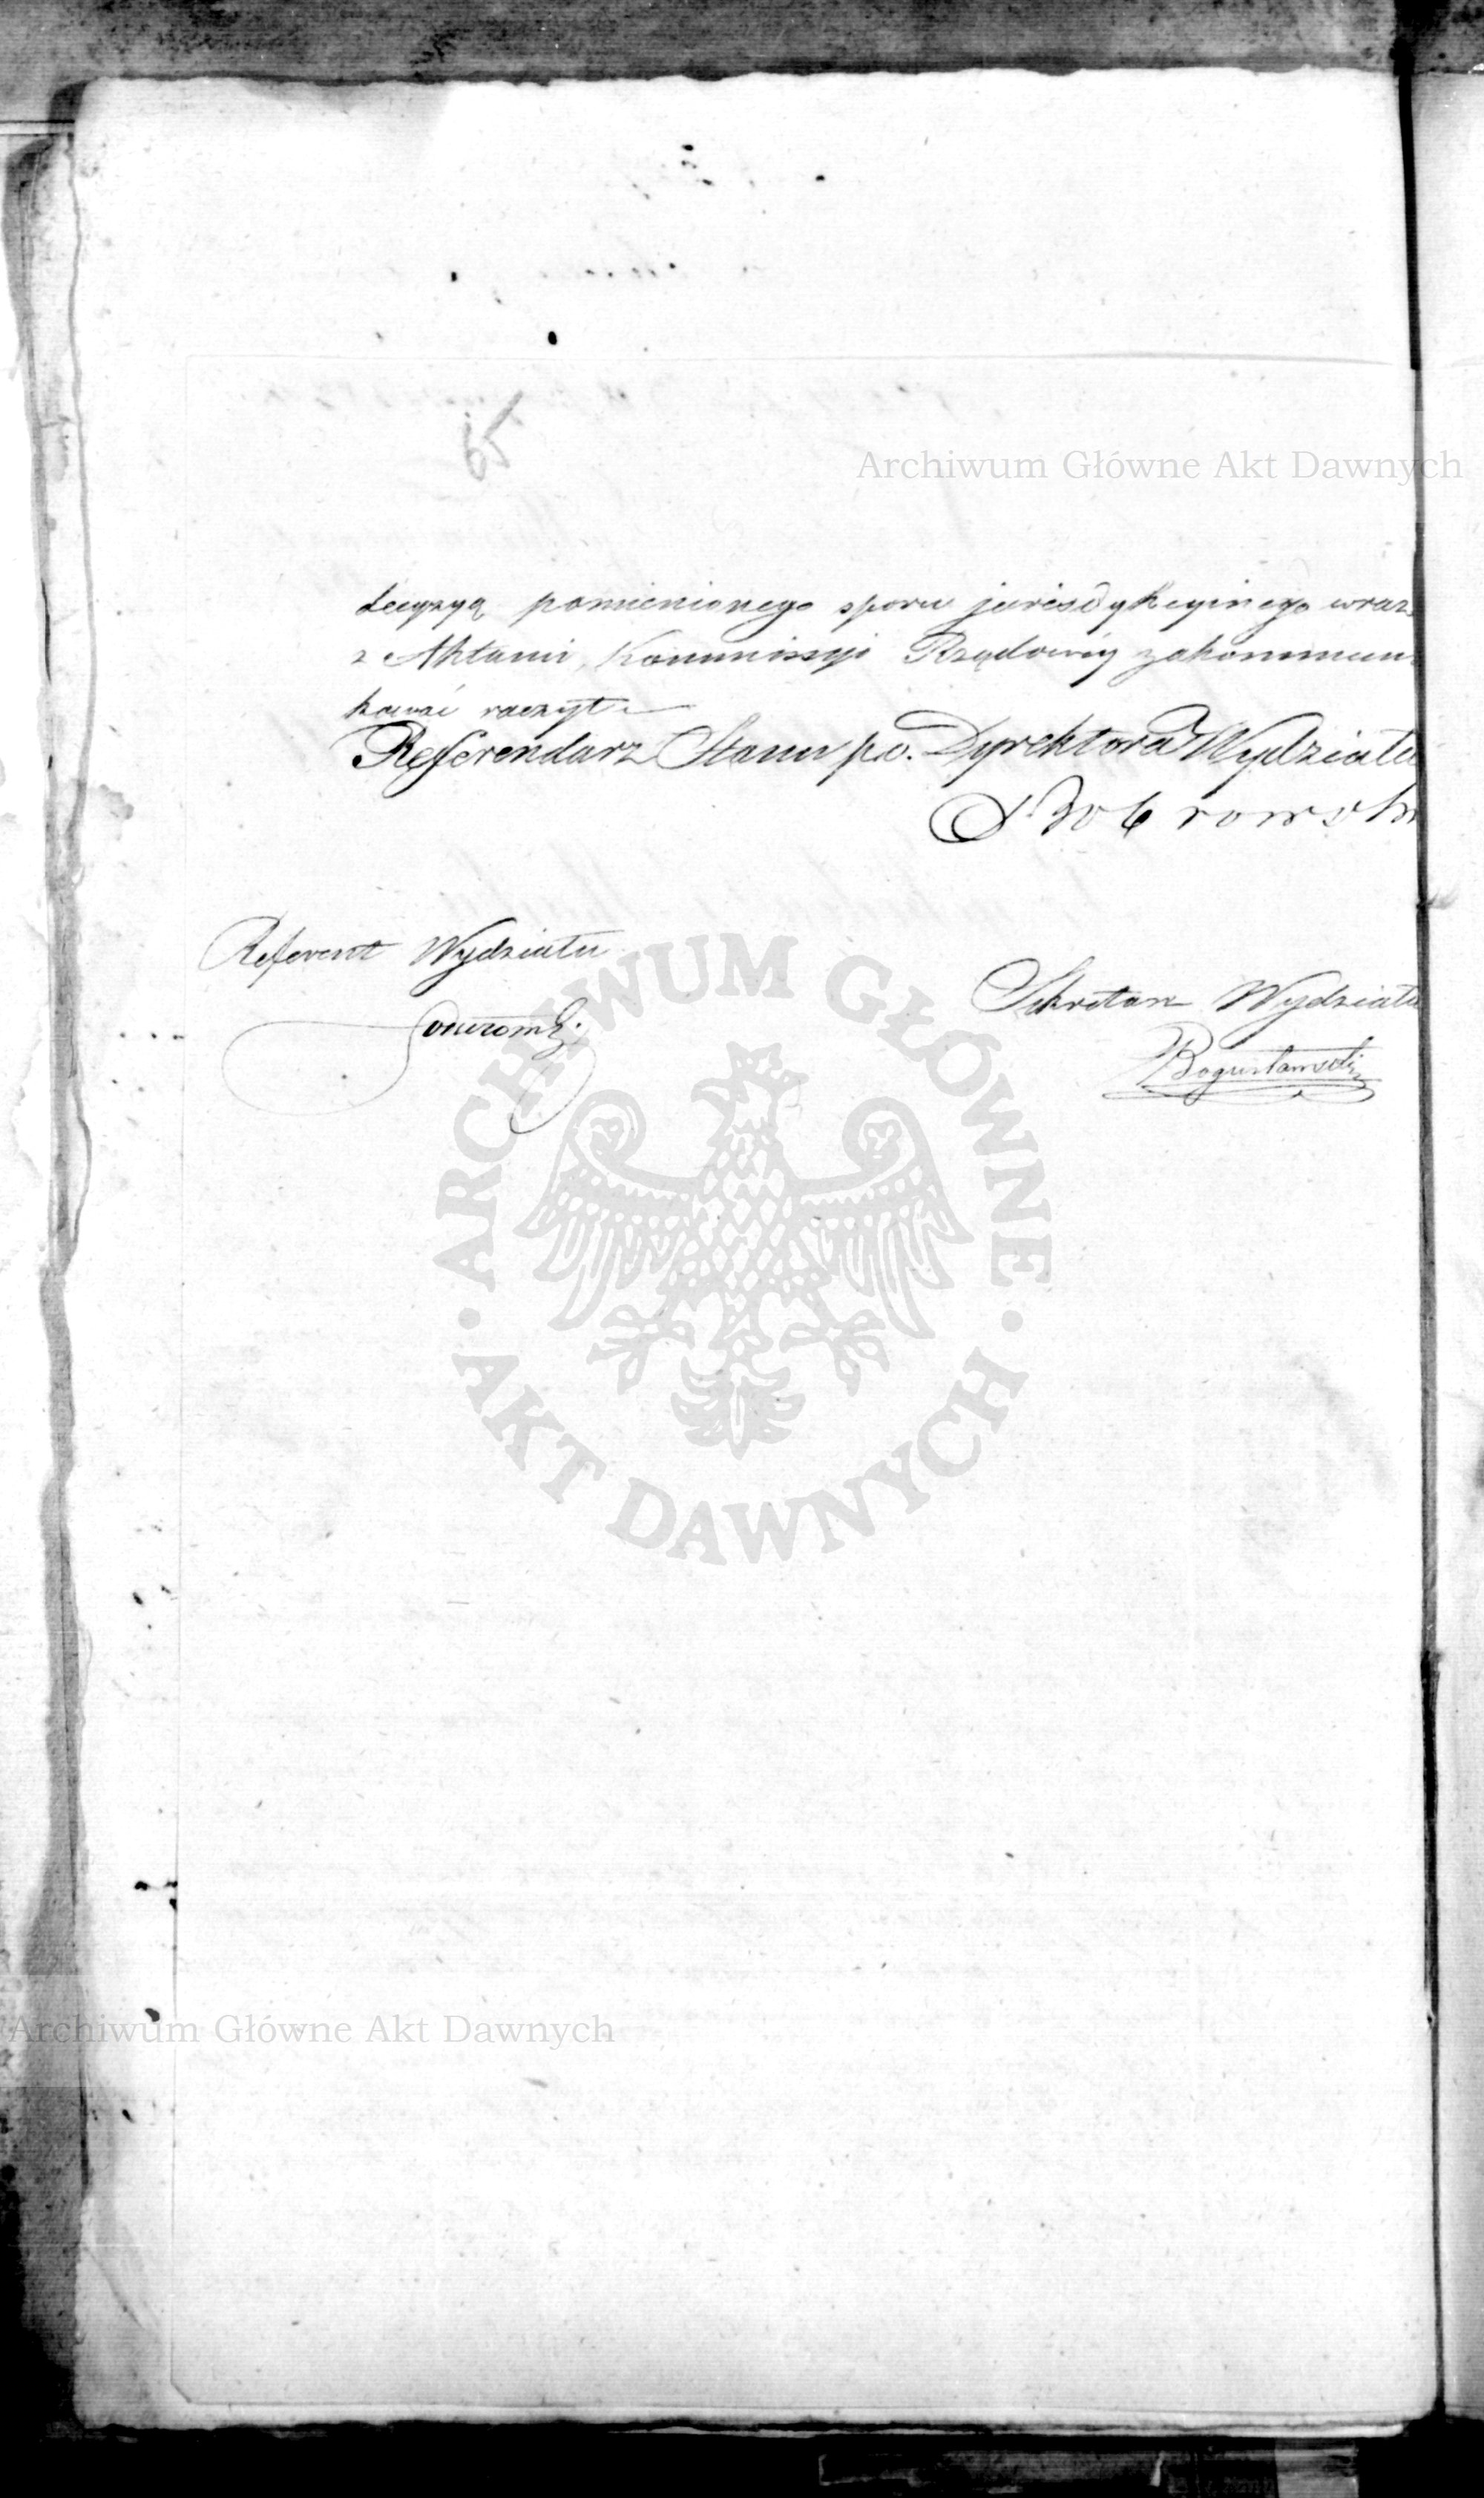 Archiwum Główne Akt Dawnych
decyzyą pomienionego sporu jurisdykcyinego wraz
z Aktami, Kommissyi Rządowéy zakommuni
kować raczył.
Referendarz Stanu p.o. Dyrektora Wydziału
Referent Wydziału
Sekretarz Wydziału
Bogusławski
ARCHIWUM GŁÓWNE
AKT DAWNYCH
Archiwum Główne Akt Dawnych